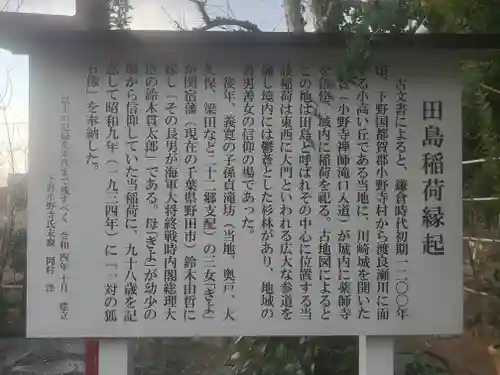 田島稲荷縁起
古文書によると、鎌倉時代初期一二〇〇年
頃、下野国都賀郡小野寺村から渡良瀬川に面
する小高い丘である当地に、川崎城を開いた
(小野寺禅師滝口入道)が城内に薬師寺
を創建、城内に稲荷を祀る。古地図によると
この地は田島と呼ばれその中心に位置する当
該稲荷は東西に大門といわれる広大な参道を
擁し境内には鬱蒼とした杉林があり、地域の
善男善女の信仰の場であった。
後年、義寛の子孫貞滝坊(当地、奥戸、大
久保、梁田など三十二郷支配)の三女「きよ」
が関宿藩(現在の千葉県野田市)鈴木由哲に
嫁し、その長男が海軍大将終戦時内閣総理大
臣の鈴木貫太郎」である。母「きよ」が幼少の
頃から信仰していた当稲荷に、九十八歳を記
念して昭和九年(一九三四年)に「一対の狐
石像」を奉納した。
以上の記録を末代まで残すべく 令和四年十月 建立
下野小野寺氏末裔 岡村 洋